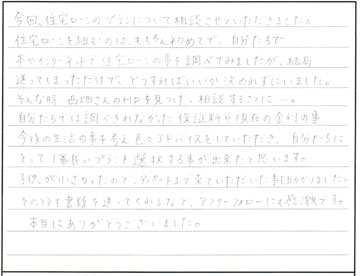 今回、住宅ローンのプランについて相談させていただきました。
住宅ローンを組むのは、もちろん初めてで、自分たちで
本やインターネットで住宅ローンの事を調べてみましたが、結局
迷ってしまっただけで、どうすればいいか決めれずにいました。
そんな時、西畑さんのHPを見つけ、相談することに…。
自分たちでは調べきれなかった保証料や現在の金利の事
今後の生活の事を考え色々アドバイスをしていただき、自分たちに
とって1番良いプランを選択する事が出来たと思います。
子供が小さかったので、アパートまで来ていただいた事も助かりました。
その後も書類を送ってくれるなど、アフターフォローにも感激です。
本当にありがとうございました。